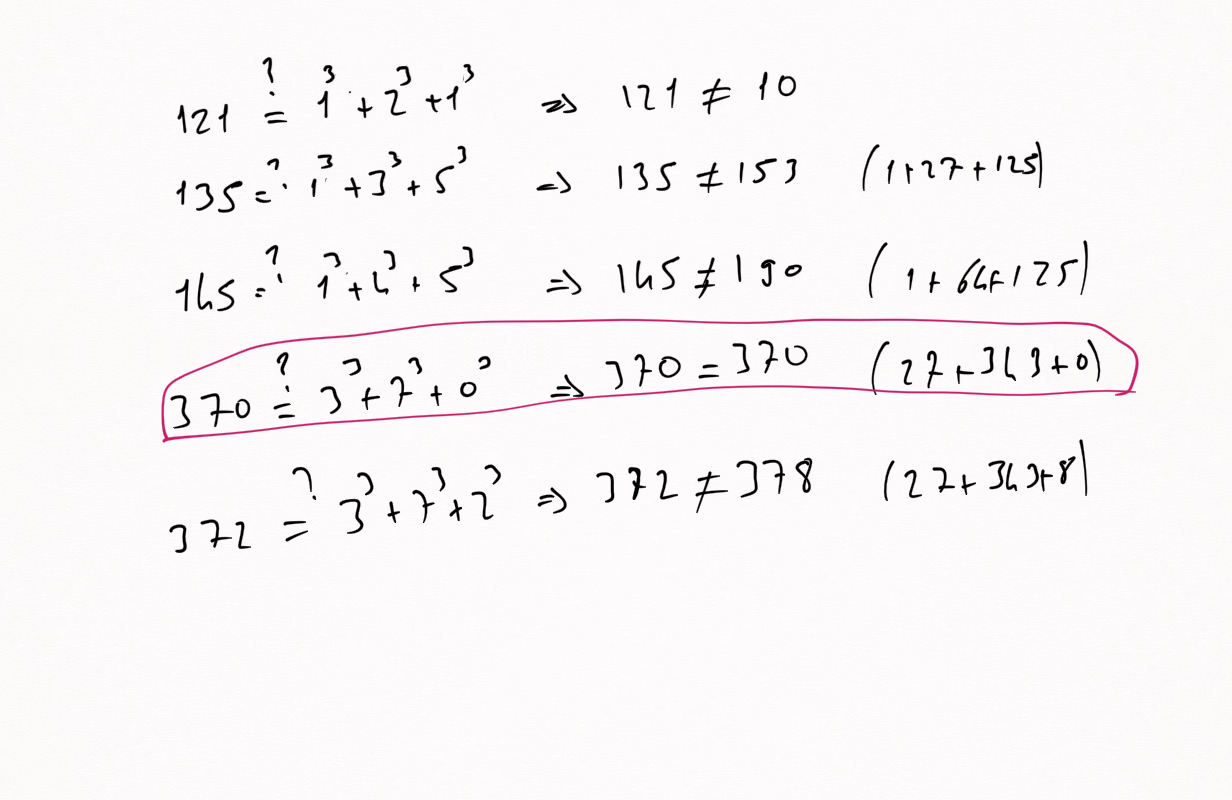 121 ≟ 1³ + 2³ + 1³ ⇒ 121 ≠ 10
135 ≟ 1³ + 3³ + 5³ ⇒ 135 ≠ 153 (1+27+125)
145 ≟ 1³ + 4³ + 5³ ⇒ 145 ≠ 190 (1+64+125)
370 ≟ 3³ + 7³ + 0³ ⇒ 370 = 370 (27+343+0)
372 ≟ 3³ + 7³ + 2³ ⇒ 372 ≠ 378 (27+343+8)